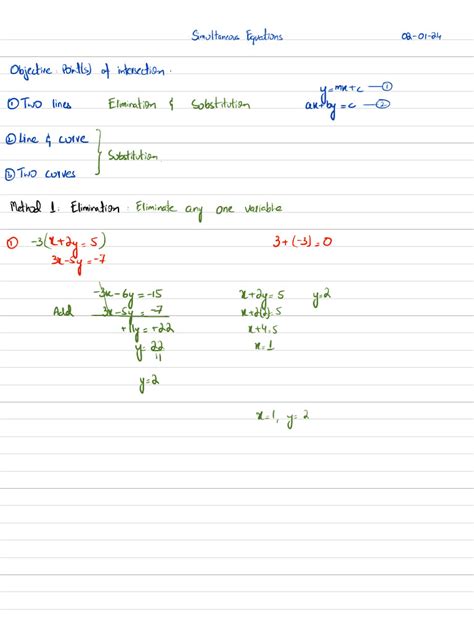 Simultaneous Equations 02-01-24
Objective: Point(s) of intersection.
y=mx+c —①
① Two lines Elimination & Substitution ax+by=c —②
② Line & curve
Substitution
③ Two curves
Method 1: Elimination: Eliminate any one variable
① -3(x+2y=5) 3+(-3)=0
3x-5y=-7
-3x-6y=-15 x+2y=5 y=2
Add 3x-5y=-7 x+2(2)=5
+11y=+22 x+4=5
y=22/11 x=1
y=2
x=1, y=2